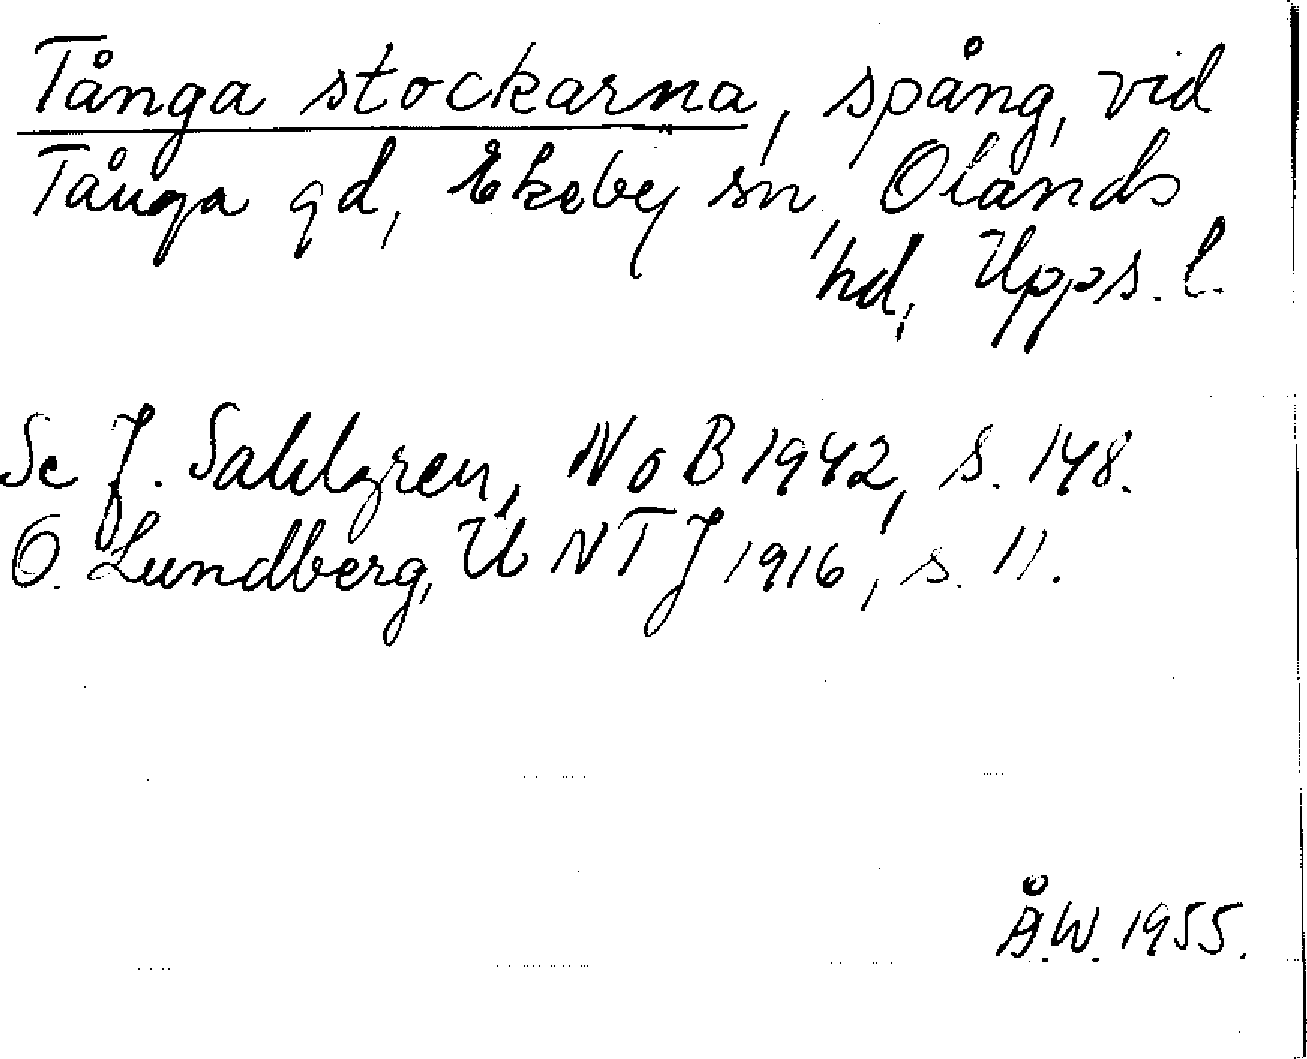 Tånga stockarna, spång, vid
Tånga gd, Ekeby sn, Olands
hd, Upps. l.
Se J. Sahlgren, NoB 1942, s. 148.
O. Lundberg, UNTJ 1916, s. 11.
Å.W. 1955.